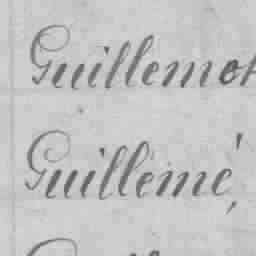 Guillemot
Guillemé,